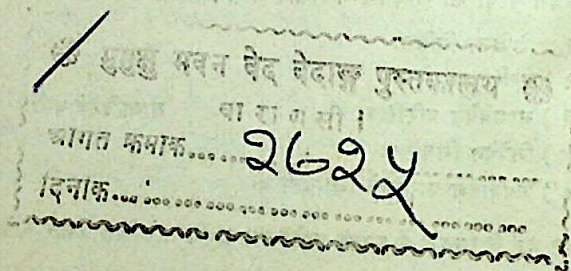 🏵 मुमुक्षु भवन वेद वेदाङ्ग पुस्तकालय 🏵
वा रा ण सी ।
आगत क्रमाक.....२७२५..........
दिनाक.................................